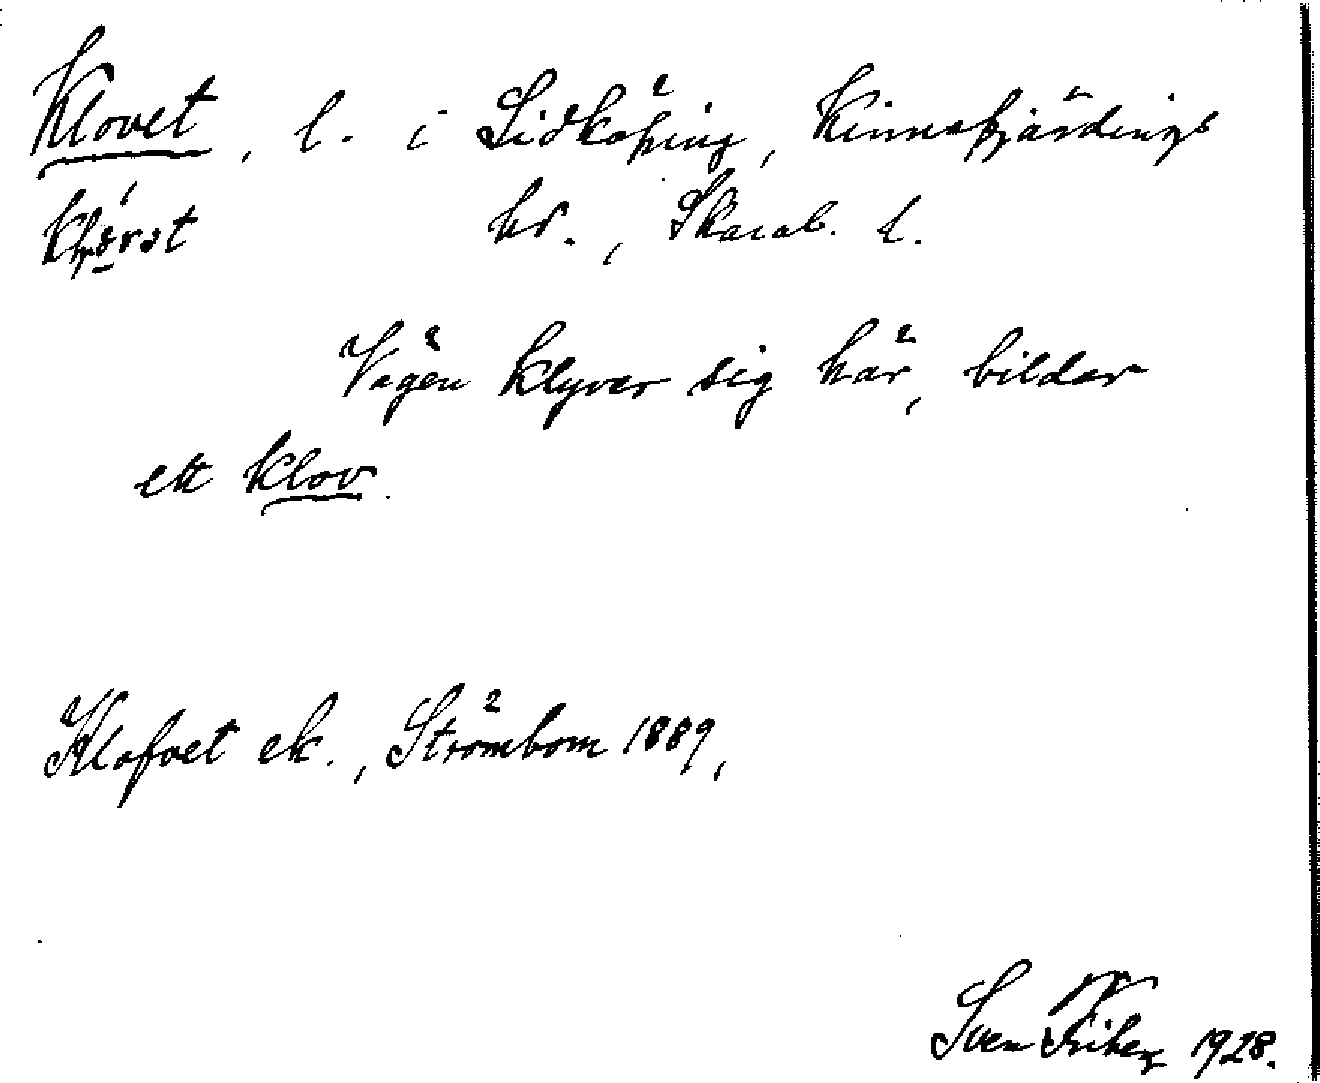 Klovet, l. i Lidköping, Kinnefjärdings
hd., Skarab. l.
Vägen klyver sig här, bildar
ett klov.
Klofvet ek., Strömbom 1889,
Sven 1928.